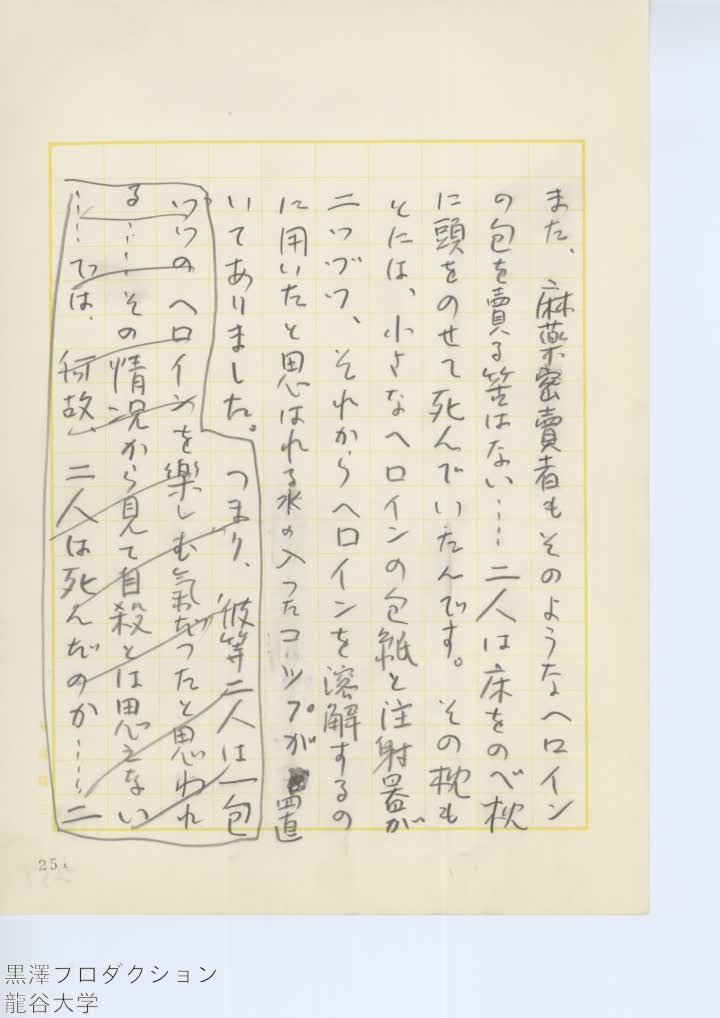 また、麻薬密賣者もそのようなヘロイン
の包を賣る筈はない……二人は床をのべ枕
に頭をのせて死んでいたんです。その枕も
とには、小さなヘロインの包紙と注射器が
二つづつ、それからヘロインを溶解するの
に用いたと思はれる水の入ったコップが置
いてありました。つまり、彼等二人は一包
づつのヘロインを楽しむ気だつたと思われ
る……その情況から見て自殺とは思えない
……では、何故、二人は死んだのか……二
251
黒澤プロダクション
龍谷大学